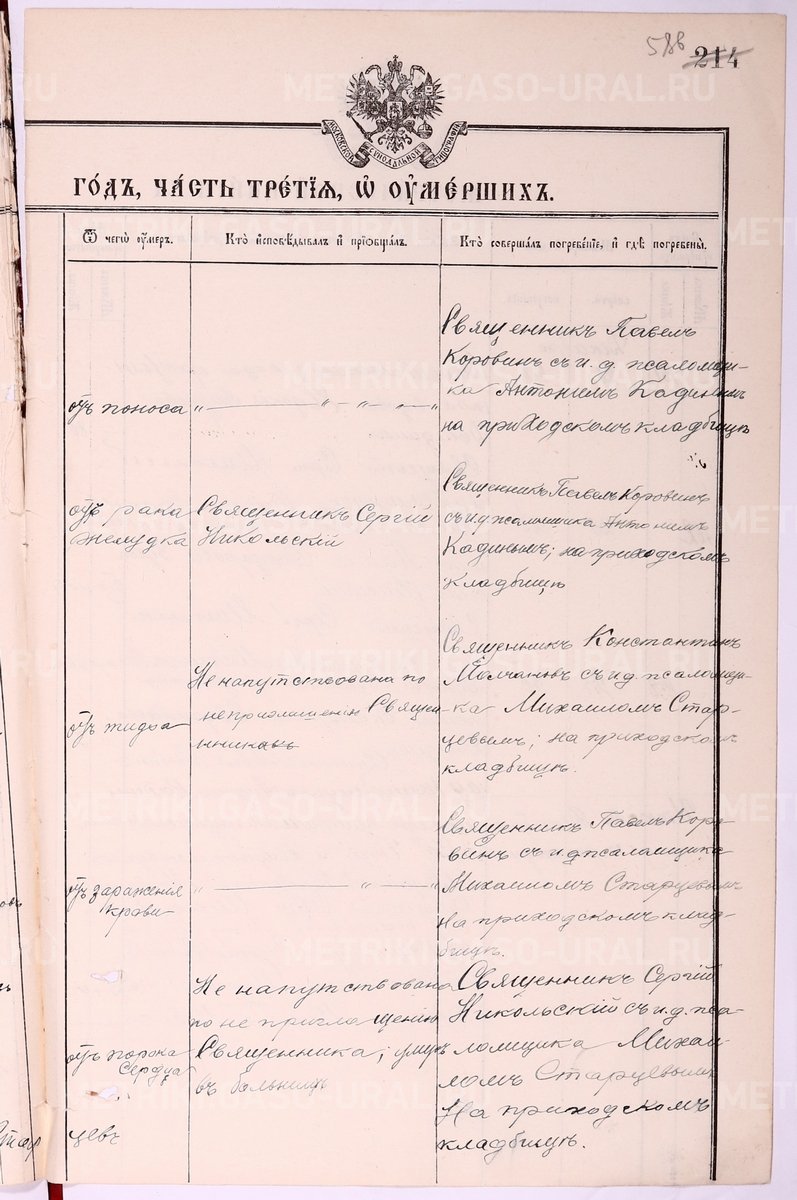 588
214
МОСКОВСКОЙ СѴНОДАЛЬНОЙ ТИПОГРАФІИ
METRIKI.GASO-URAL.RU
ГО́ДЪ, ЧА́СТЬ ТРЕ́ТІЯ, Ѡ ОУМЕ́РШИХЪ.
Ѿ чегѡ оу́меръ.
Кто̀ и҆сповѣ́дывалъ и҆ прїѡбща́лъ.
Кто̀ соверша́лъ погребе́нїе, и҆ гдѣ̀ погребены̀.
отъ поноса
„ — „ — „ — „
Священникъ Павелъ
Коровинъ съ и. д. псаломщи-
ка Антониемъ Кадинымъ
на приходскомъ кладбищѣ
отъ рака
желудка
Священникъ Сергій
Никольскій
Священникъ Павелъ Коровинъ
съ и д псаломщика Антониемъ
Кадинымъ; на приходскомъ
кладбищѣ
отъ тифа
Не напутствована по
неприглашенію Священ-
никавъ
Священникъ Константинъ
Молчановъ съ и д псаломщи-
ка Михаиломъ Стар-
цевымъ; на приходскомъ
кладбищѣ.
отъ зараженія
крови
„ — „ — „
Священникъ Павелъ Коро-
винъ съ и. д псаломщика
Михаиломъ Старцевымъ
На приходскомъ клад-
бищѣ.
отъ порока
Сердца
Не напутствована
по не приглашенію
Священника; умеръ
въ больницѣ
Священникъ Сергій
Никольскій съ и. д. пса-
ломщика Михаи-
ломъ Старцевымъ
На приходскомъ
кладбищѣ.
цевъ